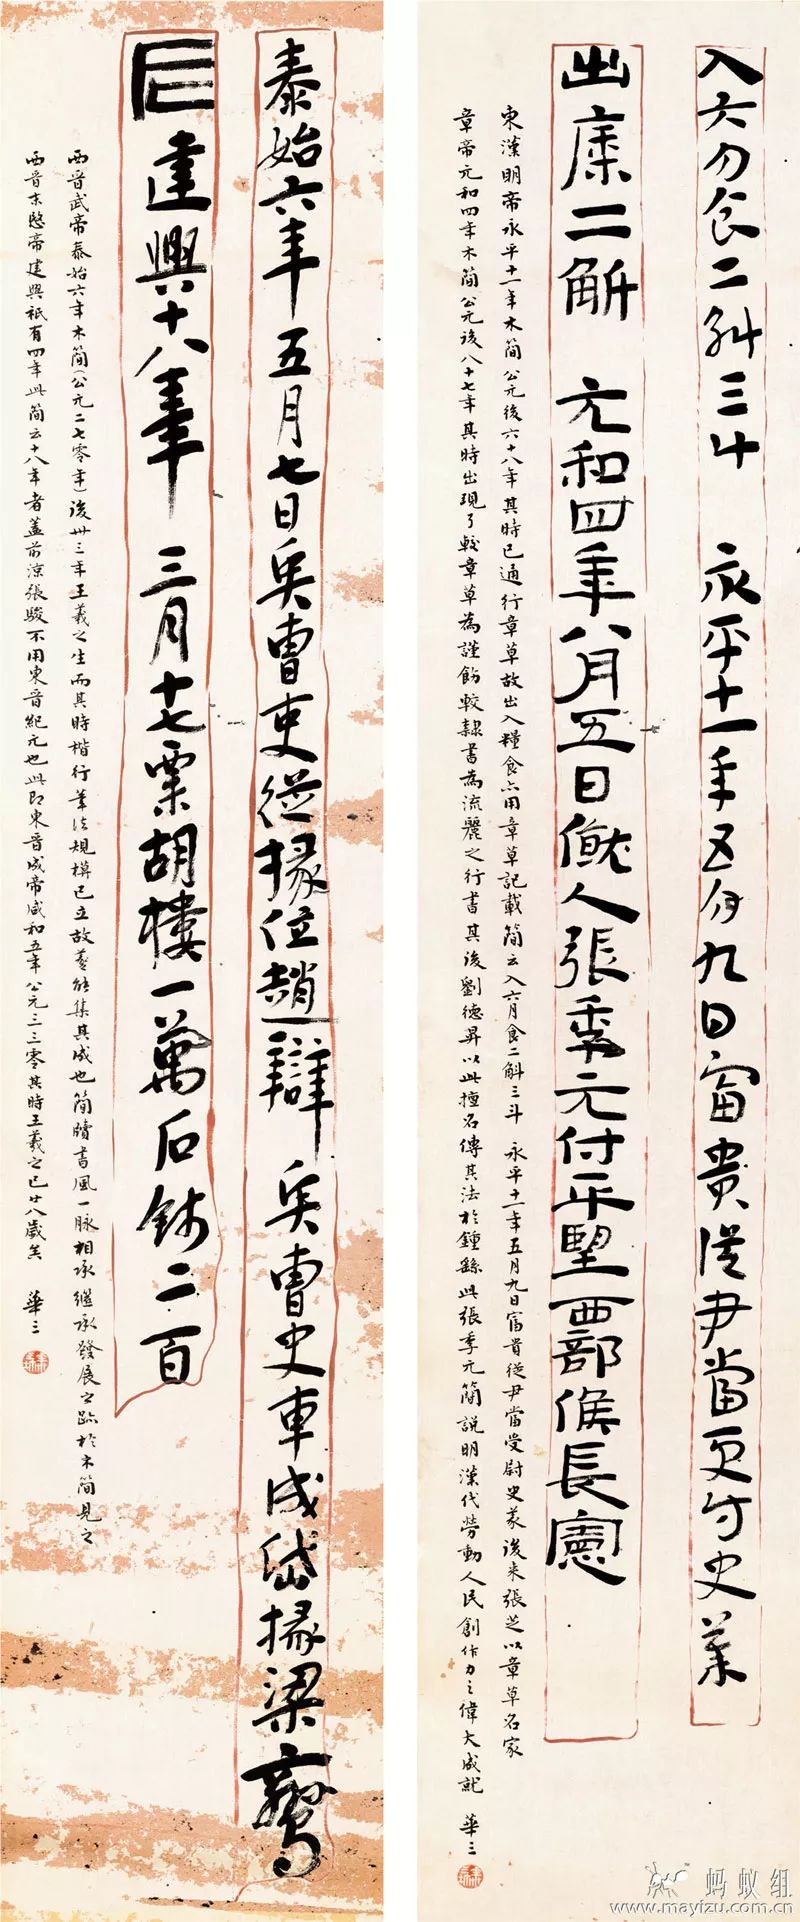 入六月食二斛三斗 永平十一年五月九日富貴從尹當受尉史義
出糜二斛 元和四年八月五日僦人張季元付平望西部候長憲
東漢明帝永平十一年木簡公元後六十八年其時已通行章草故出入糧食亦用章草記載簡云入六月食二斛三斗 永平十一年五月九日富貴從尹當受尉史義後來張芝以章草名家
章帝元和四年木簡公元後八十七年其時出現了較章草為謹飭較隸書為流麗之行書其後劉德昇以此擅名傳其法於鍾繇此張季元簡說明漢代勞動人民創作力之偉大成就 華三
泰始六年五月七日兵曹史從掾位趙辯 兵曹史車成岱掾梁鸞
建興十八年三月十七粟胡樓一萬石錢二百
西晉武帝泰始六年木簡(公元二七零年)後卅三年王羲之生而其時楷行筆法規模已立故羲能集其成也簡牘書風一脈相承繼承發展之跡於木簡見之
西晉末愍帝建興祇有四年此簡云十八年者蓋前涼張駿不用東晉紀元也此即東晉成帝咸和五年公元三三零其時王羲之已廿八歲矣 華三
蚂蚁组
www.mayizu.com.cn